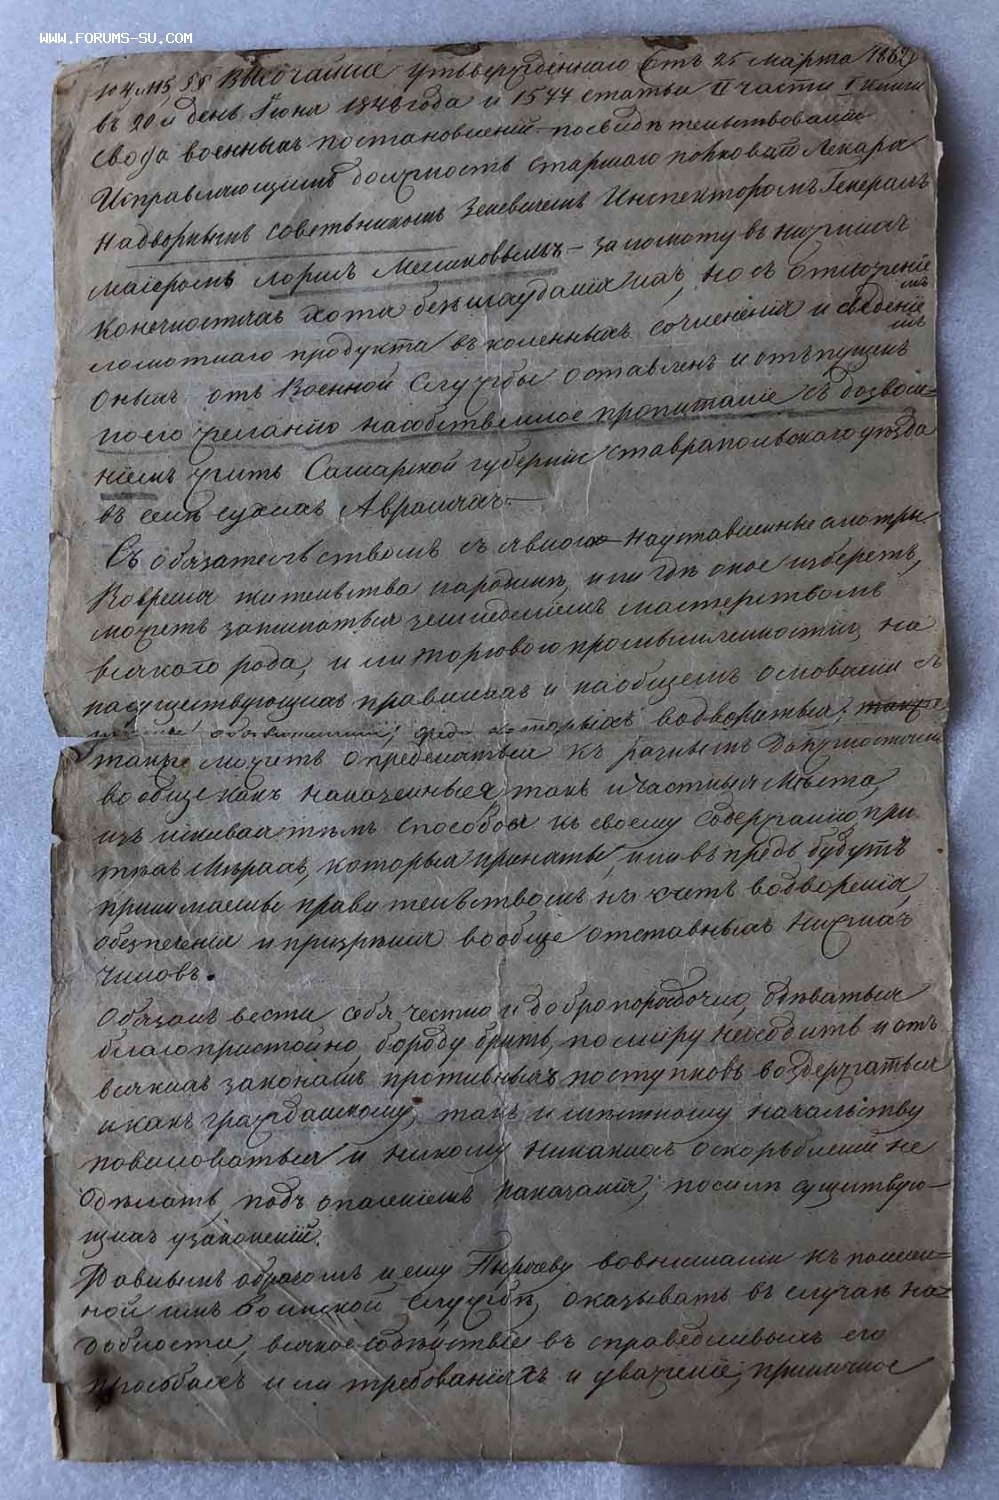 WWW.FORUMS-SU.COM
104 и 115 §§ Высочайше утвержденнаго отъ 25 марта 1862
въ 20й день Іюня 1848 года и 1577 статьи II части I книги
свода военныхъ постановленій – посвидетельствованіи
Исправляющимъ должность старшаго полковаго Лекаря
Надворнымъ советникомъ Инспекторомъ Генералъ
маіоромъ Лорисъ Меликовымъ – за ломоту въ нижнихъ
конечностяхъ хотя но съ отложеніе
мъ
ломотнаго продукта въ коленныхъ сочлененія и сведеніе
мъ
оныхъ отъ Военной Службы оставленъ и отъпущенъ
по его желанію насобственное пропитаніе съ дозволе=
ніемъ жить Самарской губерніи Ставрапольскаго уезда
въ селе сухихъ Авралихъ. —
Съ обязательствомъ наустановленные смотры
Вовремя жительства народине, или где оное изберетъ,
можетъ заниматься земледеліемъ мастерствомъ
всякаго рода, или торговою промышленностію, на
посуществующихъ правилахъ и наобщемъ основаніи съ
среди которыхъ водворится, такж
также можетъ определяться къ разнымъ Должностямъ
вообще какъ наказенныя такъ и частныя Места,
изъискивая темъ способы къ своему содержанію, при
техъ Мерахъ, которыя приняты, или въ предь будутъ
принимаемы правительствомъ на счетъ водворенія,
обезпеченія и призренія вообще отставныхъ нижнихъ
чиновъ.
Обязанъ вести себя честно и добропорядочно, одеваться
благопристойно, бороду брить, помиру неходить и отъ
всякихъ законамъ противныхъ поступковъ воздержаться
и какъ гражданскому, такъ и местному начальству
повиноваться и никому никакихъ оскорбленій не
делать, подъ опасеніемъ наказанія, посиле существую-
щихъ узаконеній.
Равнымъ образомъ и ему вовниманіи къ понесен-
ной имъ воинской службе, оказывать въ случае на=
добности, всякое содействіе въ справедливыхъ его
просьбахъ или требованіяхъ и уваженіе, приличное